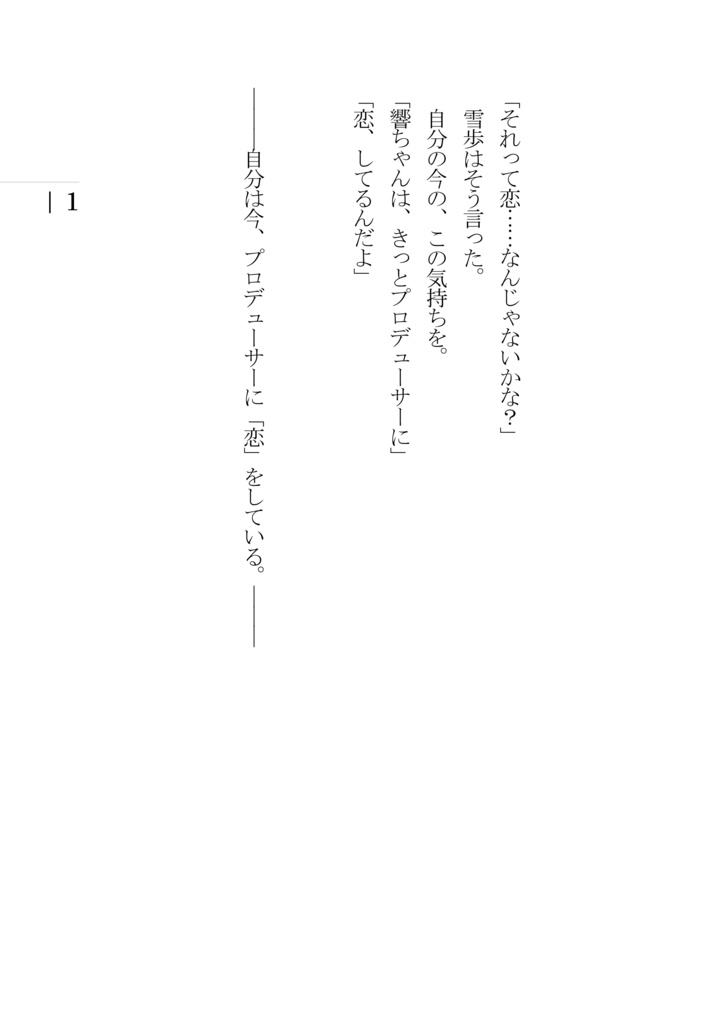 「それって恋……なんじゃないかな？」
雪歩はそう言った。
自分の今の、この気持ちを。
「響ちゃんは、きっとプロデューサーに」
「恋、してるんだよ」
―――自分は今、プロデューサーに「恋」をしている。―――
| 1